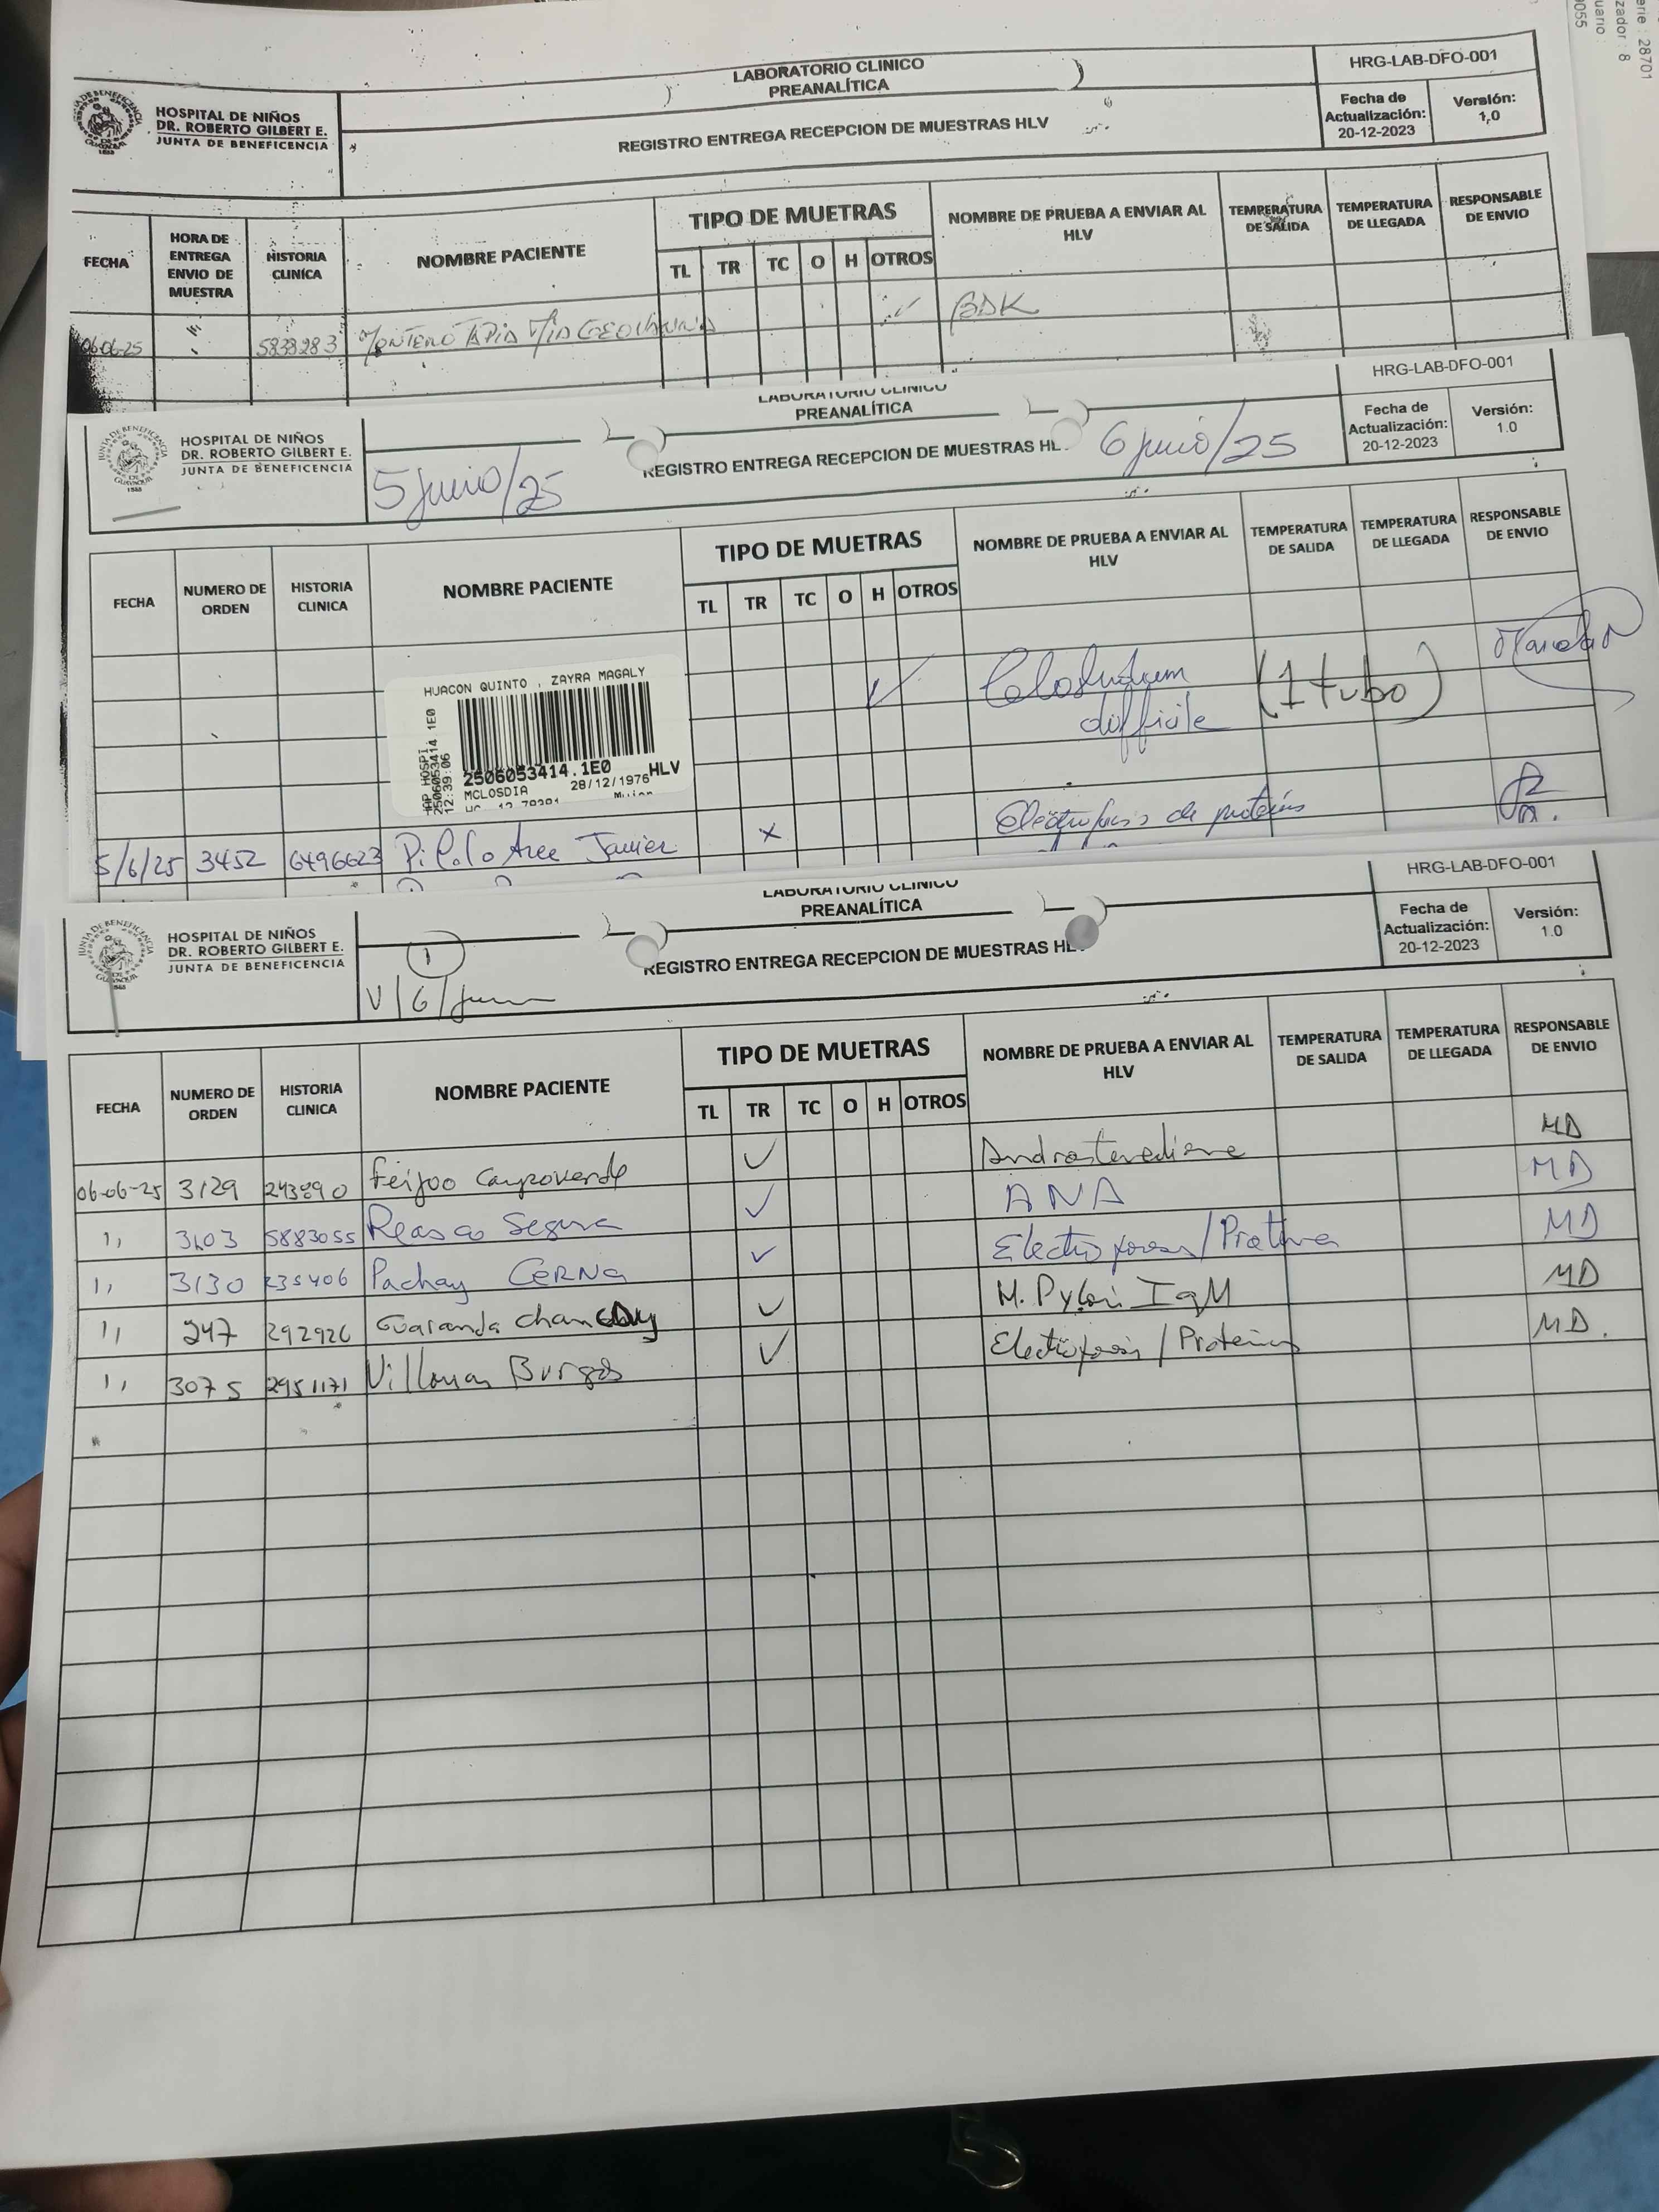 erie : 28701
zador : 8
uario :
0055
HOSPITAL DE NIÑOS
DR. ROBERTO GILBERT E.
JUNTA DE BENEFICENCIA
LABORATORIO CLINICO
PREANALÍTICA
REGISTRO ENTREGA RECEPCION DE MUESTRAS HLV
HRG-LAB-DFO-001
Fecha de Actualización: 20-12-2023
Versión: 1,0
FECHA
HORA DE ENTREGA ENVIO DE MUESTRA
HISTORIA CLINICA
NOMBRE PACIENTE
TIPO DE MUETRAS
TL TR TC O H OTROS
NOMBRE DE PRUEBA A ENVIAR AL HLV
TEMPERATURA DE SALIDA
TEMPERATURA DE LLEGADA
RESPONSABLE DE ENVIO
06-06-25 MONTERO TAPIA ✓ BDK
HOSPITAL DE NIÑOS
DR. ROBERTO GILBERT E.
JUNTA DE BENEFICENCIA
LABORATORIO CLINICO
PREANALÍTICA
5 Junio/25
REGISTRO ENTREGA RECEPCION DE MUESTRAS HL
6 Junio/25
HRG-LAB-DFO-001
Fecha de Actualización: 20-12-2023
Versión: 1.0
FECHA
NUMERO DE ORDEN
HISTORIA CLINICA
NOMBRE PACIENTE
TIPO DE MUETRAS
TL TR TC O H OTROS
NOMBRE DE PRUEBA A ENVIAR AL HLV
TEMPERATURA DE SALIDA
TEMPERATURA DE LLEGADA
RESPONSABLE DE ENVIO
HUACON QUINTO , ZAYRA MAGALY
2506053414 1E0
12:39:06
2506053414.1E0 HLV
MCLOSDIA 28/12/1976
✓ difficile (1 tubo)
5/6/25 3452 6496623 Javier x de proteínas
HOSPITAL DE NIÑOS
DR. ROBERTO GILBERT E.
JUNTA DE BENEFICENCIA
1
V/6/
LABORATORIO CLINICO
PREANALÍTICA
REGISTRO ENTREGA RECEPCION DE MUESTRAS HL
HRG-LAB-DFO-001
Fecha de Actualización: 20-12-2023
Versión: 1.0
FECHA
NUMERO DE ORDEN
HISTORIA CLINICA
NOMBRE PACIENTE
TIPO DE MUETRAS
TL TR TC O H OTROS
NOMBRE DE PRUEBA A ENVIAR AL HLV
TEMPERATURA DE SALIDA
TEMPERATURA DE LLEGADA
RESPONSABLE DE ENVIO
06-06-25 3129 Feijoo Campoverde ✓ Androstenediona MD
11 5883055 Reasco Segura ✓ ANA MD
11 3130 235406 Pachay CERNA ✓ MD
11 247 292926 Guaranda ✓ IgM MD
11 3075 2951171 Burgos ✓ MD.